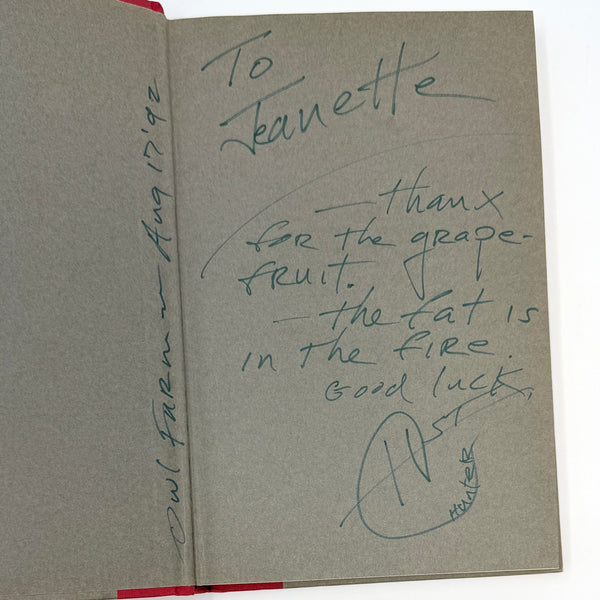 To
Jeanette
— thanx
for the grape-
fruit.
— the fat is
in the fire.
Good luck,
HST
Hunter
Owl Farm ~ Aug 17 '92